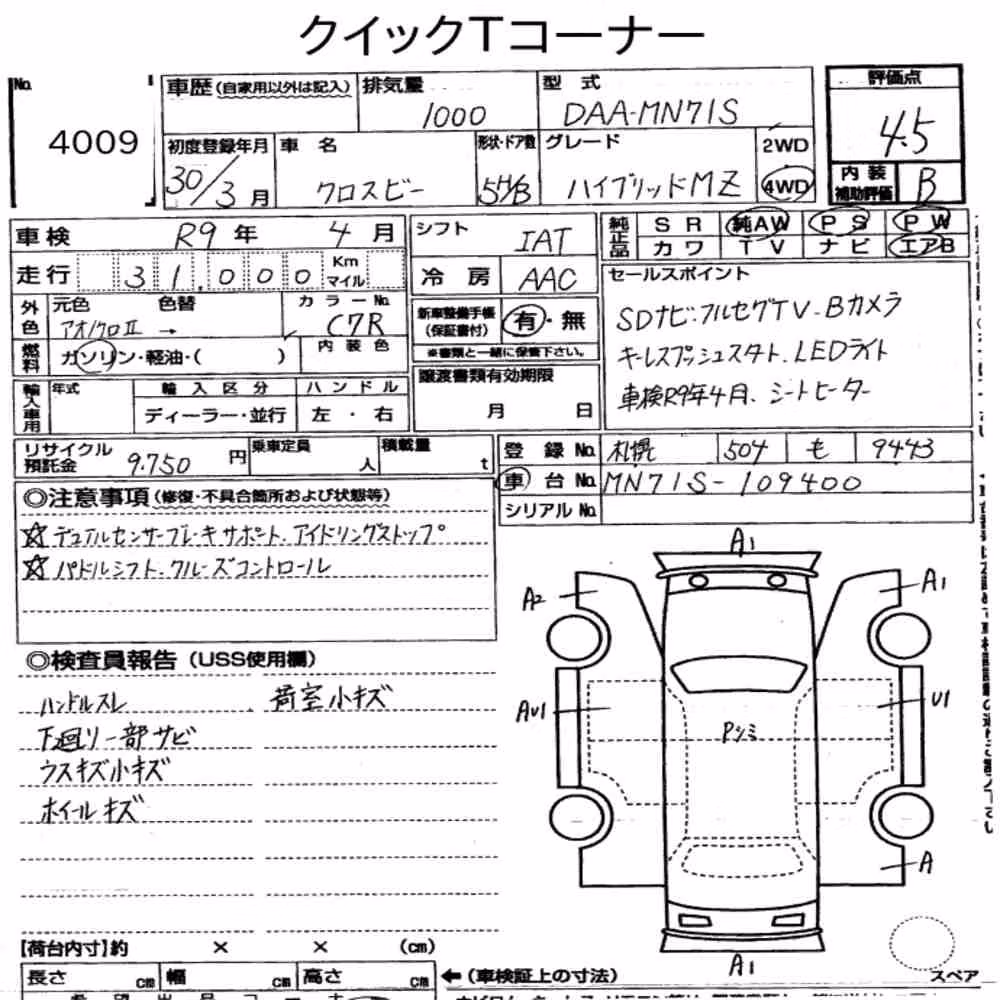 クイックTコーナー
No. 4009
車歴 (自家用以外は記入) 排気量 1000 型式 DAA-MN71S
評価点 4.5
初度登録年月 30/3月 車名 クロスビー 形状・ドア数 5H/B グレード ハイブリッドMZ 2WD 4WD
内装補助評価 B
車検 R9年 4月 シフト IAT 純正品 SR 純AW PS PW
カワ TV ナビ エアB
走行 31,000 Km マイル 冷房 AAC
セールスポイント
SDナビ・フルセグTV・Bカメラ
キーレスプッシュスタート、LEDライト
車検R9年4月、シートヒーター
外色 元色 アオ/クロII → 色替 カラーNo. C7R
新車整備手帳 (保証書付) 有・無
※書類と一緒に保管下さい。
燃料 ガソリン・軽油・( ) 内装色
譲渡書類有効期限 月 日
輸入車用 年式 輸入区分 ハンドル
ディーラー・並行 左・右
リサイクル預託金 9.750円 乗車定員 人 積載量 t
登録No. 札幌 504 も 9443
車台No. MN71S-109400
シリアルNo.
◎注意事項 (修復・不具合箇所および状態等)
☆デュアルセンサーブレーキサポート、アイドリングストップ
☆パドルシフト、クルーズコントロール
◎検査員報告 (USS使用欄)
ハンドルスレ 荷室小キズ
下廻り一部サビ
ウスキズ小キズ
ホイールキズ
A1
A2
A1
AU1
U1
Pシミ
A
A1
スペア
【荷台内寸】約 × × (cm)
長さ cm 幅 cm 高さ cm
←(車検証上の寸法)